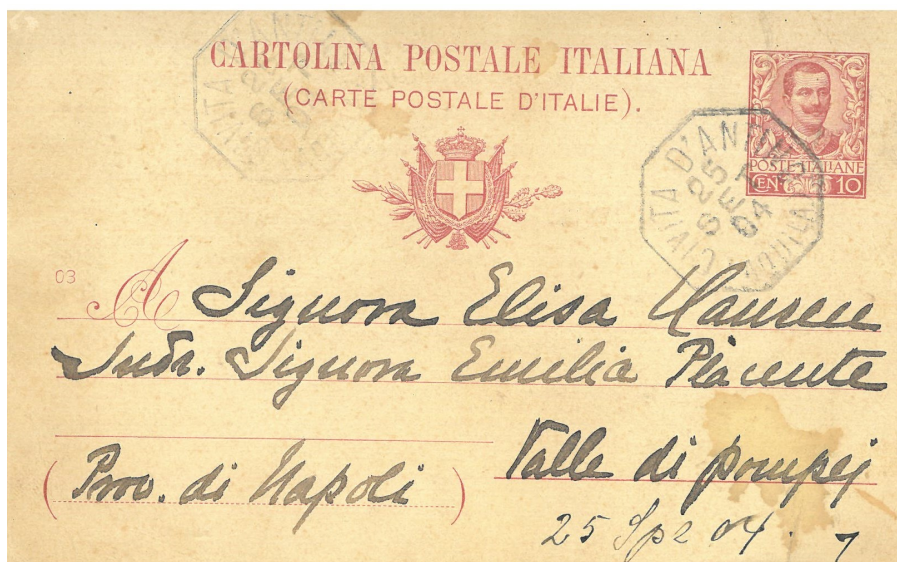 CARTOLINA POSTALE ITALIANA
(CARTE POSTALE D'ITALIE).
POSTE ITALIANE
CEN. 10
CIVITA D'ANTINO
25 SET 04
AQUILA
03
A Signora Elisa Hansen
Indr. Signora Emilia Piacente
Valle di Pompej
(Prov. di Napoli)
25 Spe 04.